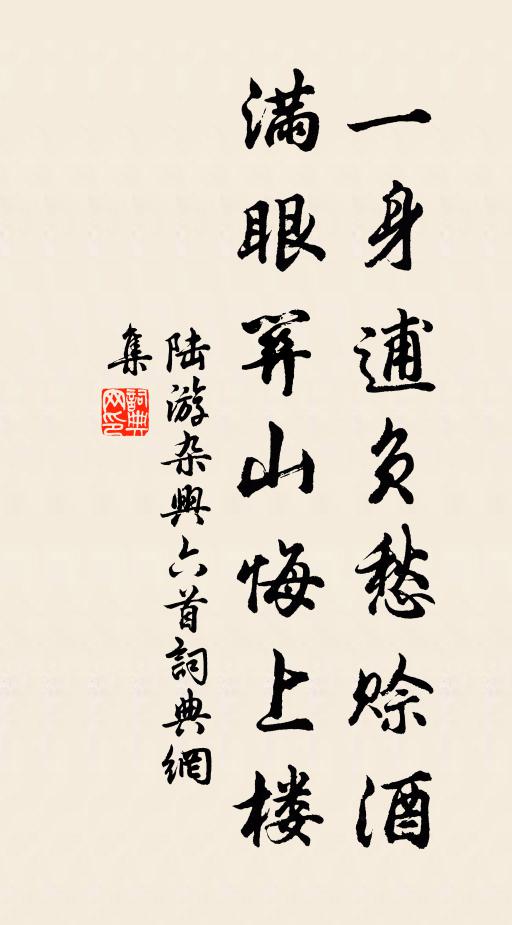 一身逋负愁赊酒
滿眼关山悔上楼
陆游杂興六首詞典網
集
詞典网印